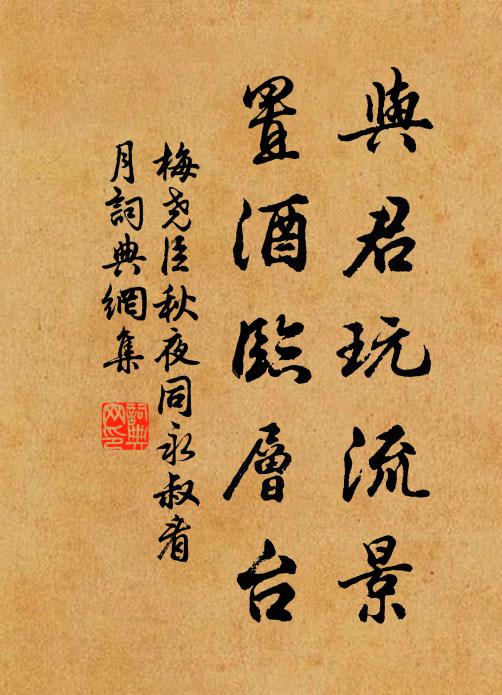 與君玩流景
置酒臨層台
梅尧臣秋夜同永叔看
月詞典網集
詞典
网印